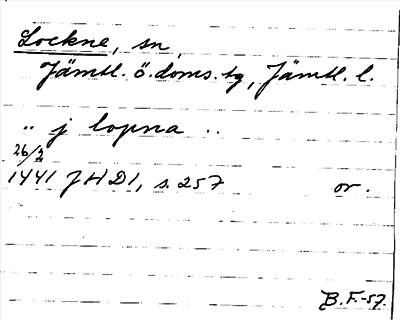 Lockne, sn
Jämtl. ö. doms. tg, Jämtl. l.
.. j lopna ..
26/3
1441 JHD1, s. 257 or.
B.F.-57.